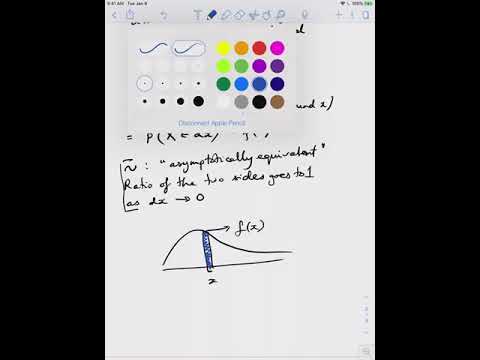 9:41 AM Tue Jan 8
100%
Disconnect Apple Pencil
und x)
= P(X ∈ dx)
~ : "asymptotically equivalent"
Ratio of the two sides goes to 1
as dx → 0
f(x)
x